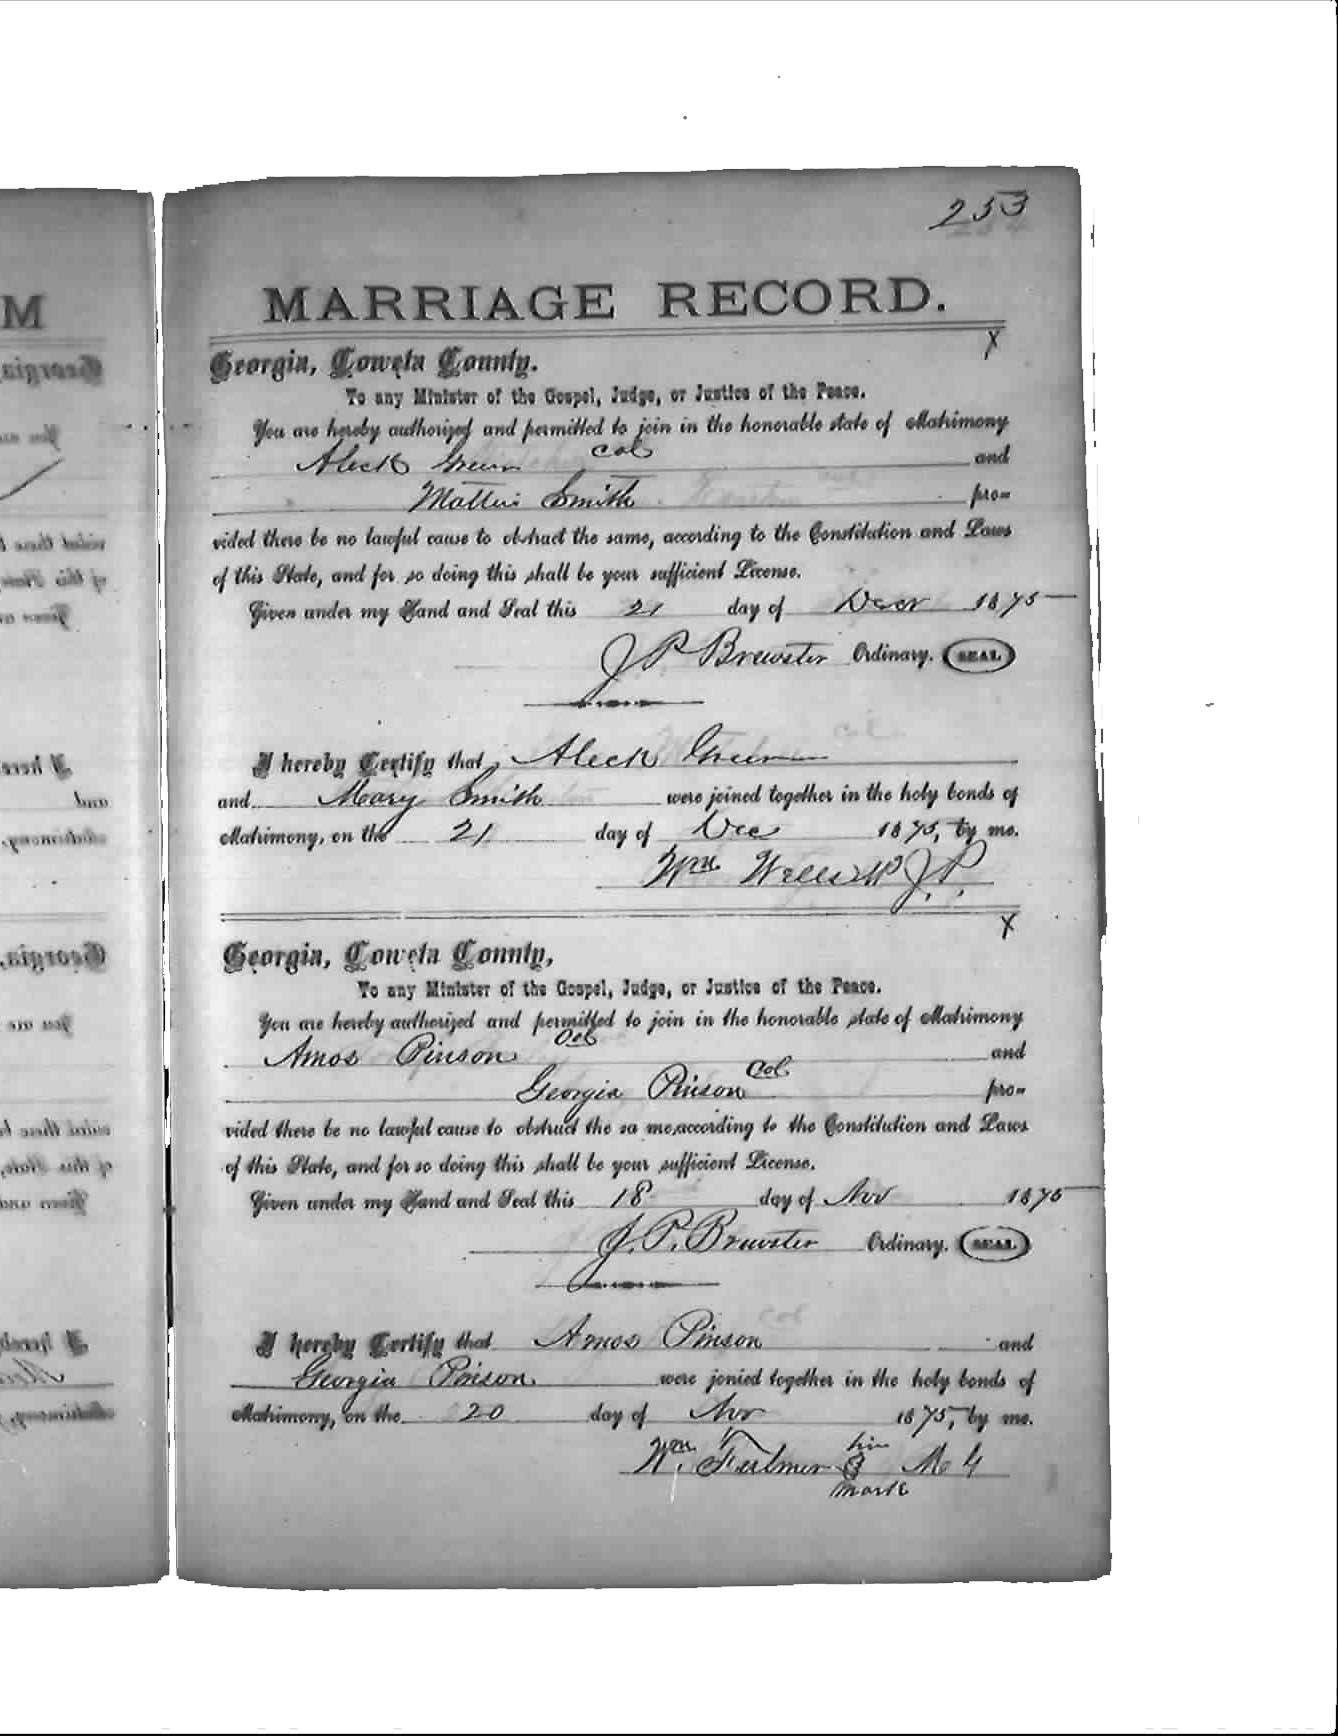 253
MARRIAGE RECORD.
X
Georgia, Coweta County.
To any Minister of the Gospel, Judge, or Justice of the Peace.
You are hereby authorized and permitted to join in the honorable state of Matrimony
Aleck Green Col and
Mattie Smith pro-
vided there be no lawful cause to obstruct the same, according to the Constitution and Laws
of this State, and for so doing this shall be your sufficient License.
Given under my Hand and Seal this 21 day of Decr 1875
J P Brewster Ordinary. SEAL
I hereby Certify that Aleck Green
and Mary Smith were joined together in the holy bonds of
Matrimony, on the 21 day of Dec 1875, by me.
Wm J.P.
X
Georgia, Coweta County,
To any Minister of the Gospel, Judge, or Justice of the Peace.
You are hereby authorized and permitted to join in the honorable state of Matrimony
Amos Pinson Col and
Georgia Pinson Col pro-
vided there be no lawful cause to obstruct the sa me, according to the Constitution and Laws
of this State, and for so doing this shall be your sufficient License.
Given under my Hand and Seal this 18 day of Nov 1875
J. P. Brewster Ordinary. SEAL
I hereby Certify that Amos Pinson and
Georgia Pinson were jonied together in the holy bonds of
Matrimony, on the 20 day of Nov 1875, by me.
Wm. his M G
mark